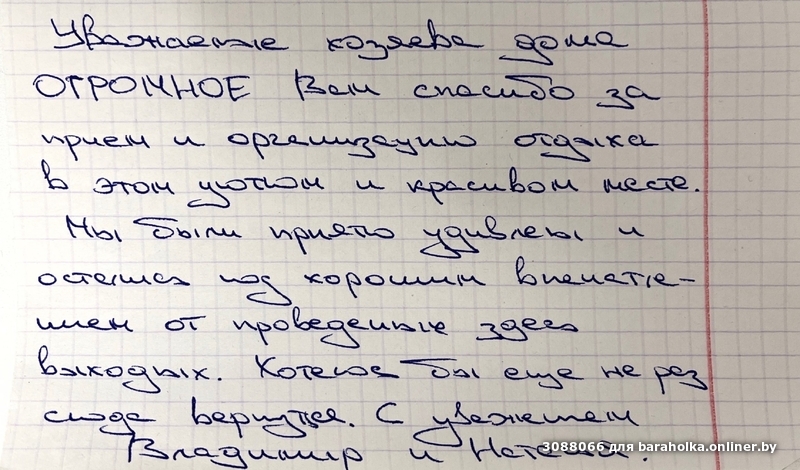 Уважаемые хозяева дома
ОГРОМНОЕ Вам спасибо за
прием и организацию отдыха
в этом уютном и красивом месте.
Мы были приятно удивлены и
остались под хорошим впечатле-
нием от проведенных здесь
выходных. Хотелось бы еще не раз
сюда вернуться. С уважением
Владимир и Наталья.
3088066 для baraholka.onliner.by